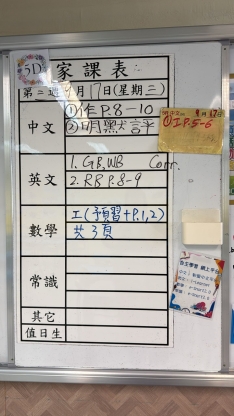 5D
家課表
第二週 9月17日(星期三)
中文
①作P.8-10
②明默言平
9月17日
①工P.5-6
英文
1. GB, WB Corr.
2. RB P.8-9
數學
工(預習+P.1,2)
共3頁
常識
其它
值日生
自主學習 網上平台